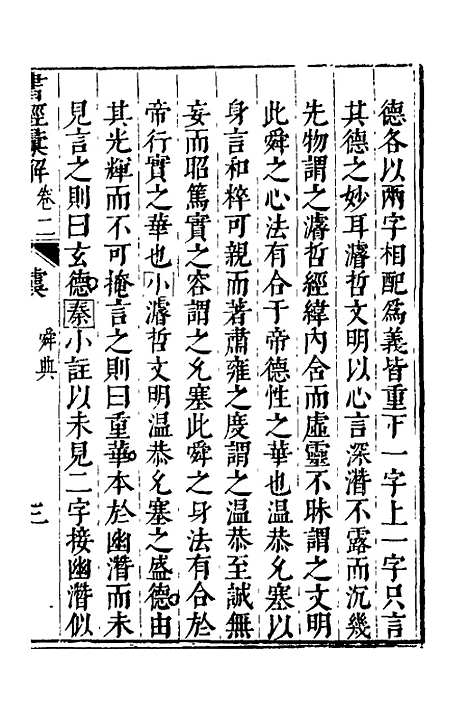 德各以兩字相配爲義皆重下一字上一字只言
其德之妙耳濬哲文明以心言深潛不露而沉幾
先物謂之濬哲經緯內含而虛靈不昧謂之文明
此舜之心法有合于帝德性之華也溫恭允塞以
身言和粹可親而著肅雍之度謂之溫恭至誠無
妄而昭篤實之容謂之允塞此舜之身法有合於
帝行實之華也小濬哲文明溫恭允塞之盛德由
其光輝而不可掩言之則曰重華本於幽潛而未
見言之則曰玄德秦小註以未見二字接幽潛似
書經彙解 卷二 舜典 三